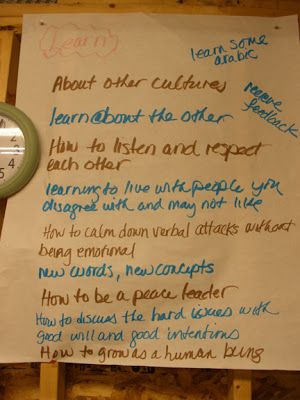 Learn
learn some
arabic
About other cultures
receive
feedback
learn about the other
How to listen and respect
each other
learning to live with people you
disagree with and may not like
How to calm down verbal attacks without
being emotional
new words, new concepts
How to be a peace leader
How to discuss the hard issues with
good will and good intentions
How to grow as a human being
2
3
4
5